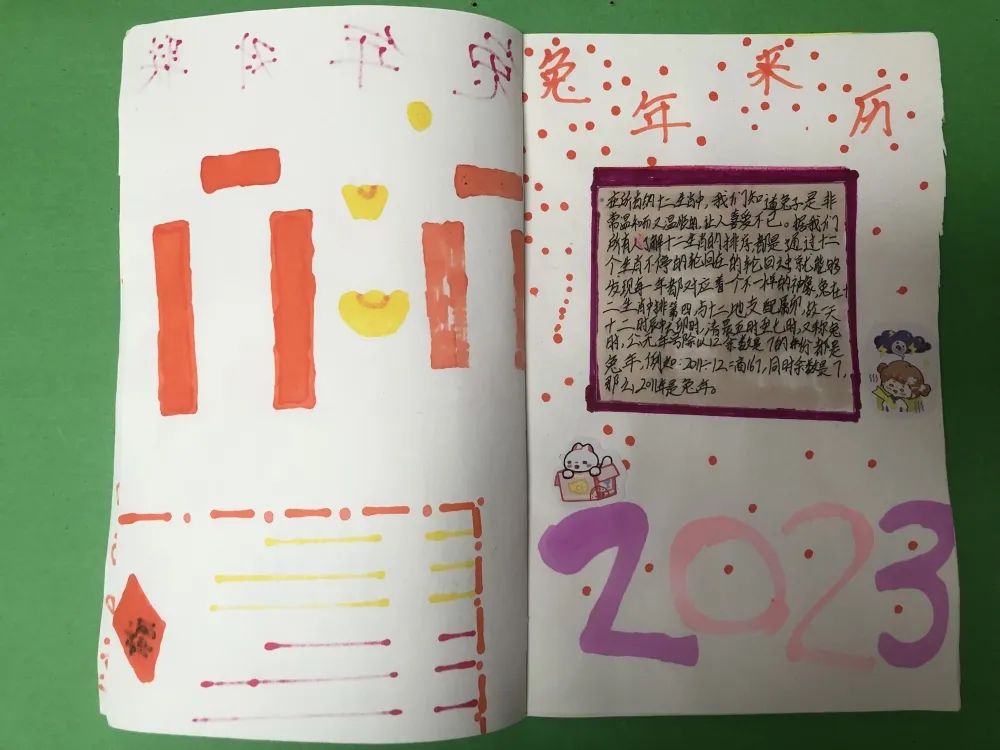 兔年对联
兔年来历
在所有的十二生肖中，我们知道兔子是非
常温和而又温顺的，让人喜爱不已。据我们
所有人了解十二生肖的排序，都是通过十二
个生肖不停的轮回在的轮回之中，就能够
发现每一年都对应着一个不一样的神象，兔在十
二生肖中排第四，与十二地支配属卯，故一天
十二时辰卯时，清晨五时至七时，又称兔
时，公元年号除以12余数是7的年份都是
兔年，例如：2011÷12=商167，同时余数是7，
那么，2011年是兔年。
2023